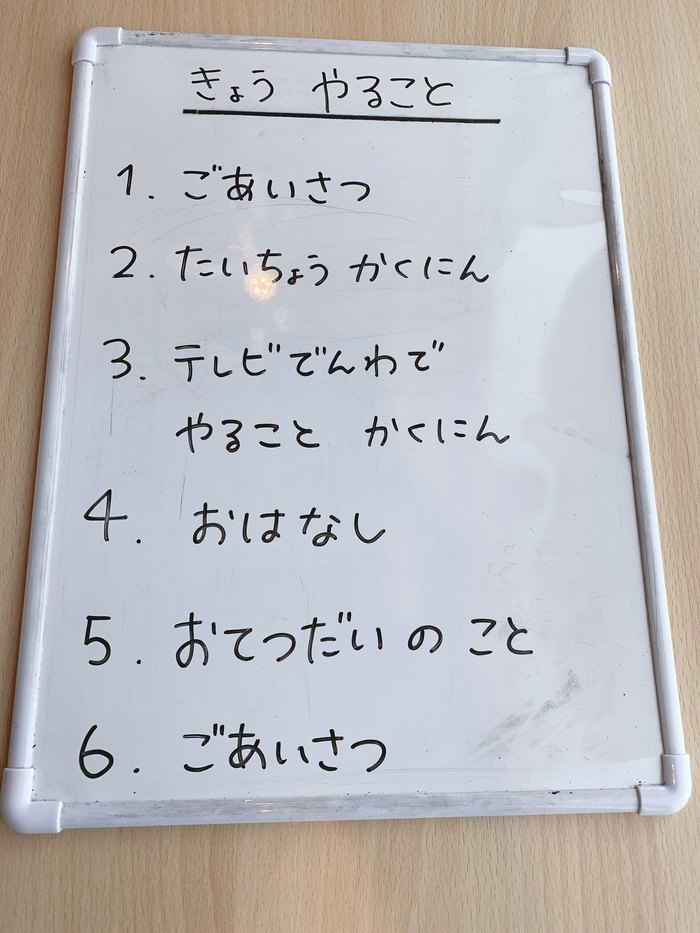 きょう やること
1. ごあいさつ
2. たいちょう かくにん
3. テレビでんわで
やること かくにん
4. おはなし
5. おてつだい の こと
6. ごあいさつ